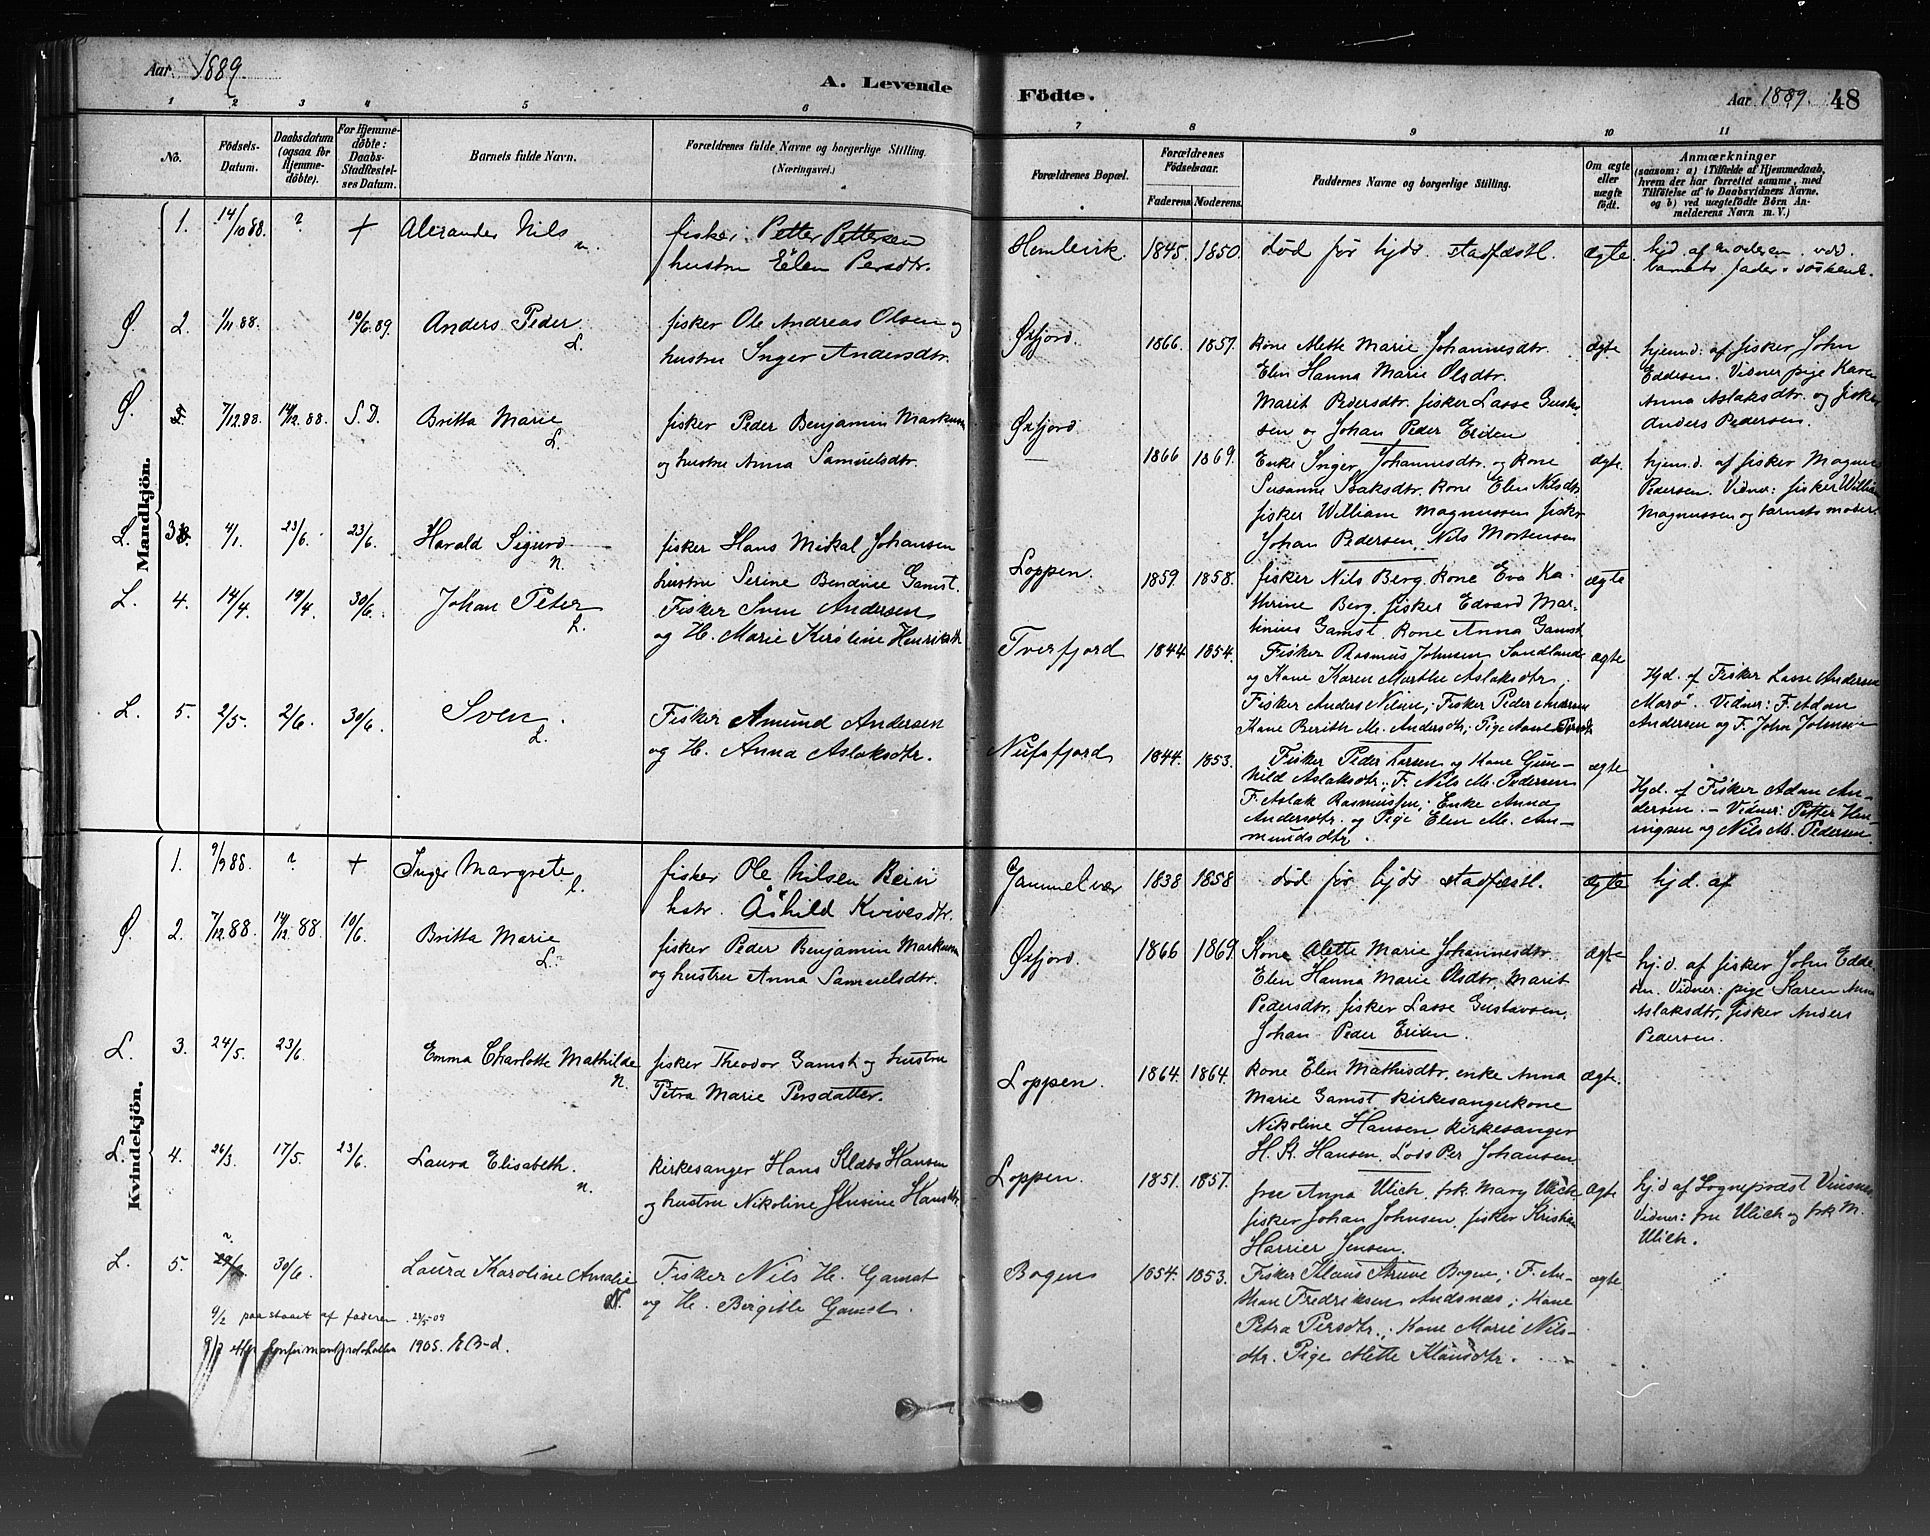 Aar 1889.
A. Levende
Födte.
Aar 1889. 48
1 2 3 4 5 6 7 8 9 10 11
No.
Födsels-
Datum.
Daabsdatum
(ogsaa for
Hjemme-
döbte).
For Hjemme-
döbte:
Daabs-
Stadfæstel-
ses Datum.
Barnets fulde Navn.
Forældrenes fulde Navne og borgerlige Stilling.
(Næringsvei.)
Forældrenes Bopæl.
Forældrenes
Födselsaar.
Faderens. Moderens.
Faddernes Navne og borgerlige Stilling.
Om ægte
eller
uægte
födt.
Anmærkninger
(saasom: a) i Tilfælde af Hjemmedaab,
hvem der har forrettet samme, med
Tilföielse af to Daabsvidners Navne,
og b) ved uægtefödte Börn An-
melderens Navn m. V.)
Mandkjön.
1. 14/10 88. ? + Alexander Nils
n.
fisker Petter Pettersen
hustru Eelen Persdtr.
1845. 1850. død før hjds stadfæstl. ægte. hjd. af moderen. vid.
barnets fader
Ø. 2. 1/11 88. 10/6.89. Anders Peder
L.
fisker Ole Andreas Olsen og
hustru Inger Andersdtr.
Øxfjord. 1866. 1857. Kone Alette Marie Johannesdtr.
Elen Hanna Marie Olsdtr.
Marit Pedersdtr. fisker Lasse Gustav-
sen og Johan Peder Eriten
ægte hjemd. af fisker John
Eddesen. Vidner pige Karen
Anna Aslaksdtr. og fisker
Anders Pedersen.
Ø. 7/12.88. 14/12.88. S.D. Britta Marie
L.
fisker Peder Benjamin Markussen
og hustru Anna Samuelsdtr.
Øxfjord. 1866 1869. Enke Inger Johannesdtr. og Kone
Susanne Isaksdtr. Kone Elen Nilsdtr
fisker William Magnussen fisker
Johan Pedersen, Nils Mortensen
ægte. hjem.d. af fisker Magnus
Pedersen. Vidner: fisker William
Magnussen og barnets moder.
L. 3. 4/1. 23/6. 23/6. Harald Sigurd
n.
fisker Hans Mikal Johansen
hustru Serine Bendine Gamst.
Loppen. 1859. 1858. fisker Nils Berg, Kone Eva Ka-
thrine Berg, fisker Edvard Mar-
tinius Gamst, Kone Anna Gamst
ægte
L. 4. 14/4. 19/4. 30/6. Johan Peter
L.
Fisker Sven Andersen
og H. Marie Kirstine Henriksdtr
Tverfjord 1844 1854. Fisker Rasmus Johnsen Sandland
og Kone Karen Marthe Aslaksdtr,
Fisker Anders Nilsen, Fisker Peder Andersen
Kone Berith M. Andersdtr, Pige
ægte Hjd. af Fisker Lasse Andersen
Marø. Vidner: F. Adam
Andersen og F. John Johnsen
L. 5. 2/5. 2/6. 30/6. Sven.
L.
Fisker Amund Andersen
og H. Anna Aslaksdtr.
Nufsfjord 1844. 1853. Fisker Peder Larsen og Kone Gun-
hild Aslaksdtr.; F. Nils M. Pedersen
F. Aslak Rasmussen; Enke Anna
Andersdtr. og Pige Elen M. Am-
mundsdtr.
ægte Hjd. af Fisker Adam An-
dersen. - Vidner: Petter Hen-
ingsen og Nils M. Pedersen
Kvindekjön.
1. 9/9 88. ? + Inger Margrete
l.
fisker Ole Nilsen Beivi
hstr. Åshild Kvivesdtr.
Gammelvær 1838 1858 død før hjds stadfæstl. ægte hjd. af
Ø. 2. 7/12.88. 14/12.88. 10/6. Britta Marie
L.
fisker Peder Benjamin Markussen
og hustru Anna Samuelsdtr.
Øxfjord. 1866 1869. Kone Alette Marie Johannesdtr.
Elen Hanna Marie Olsdtr, Marit
Pedersdtr, fisker Lasse Gustavsen,
Johan Peder Eriten.
ægte hj.d. af fisker John Edde-
sen. Vidner: pige Karen Anna
Aslaksdtr, fisker Anders
Pedersen.
L. 3. 24/5. 23/6. Emma Charlotte Mathilde
n.
fisker Theodor Gamst og hustru
Petra Marie Persdatter.
Loppen. 1864. 1864. Kone Elen Mathisdtr, enke Anna
Marie Gamst kirkesangerkone
Nikoline Hansen kirkesanger
H. K. Hansen, Lods Per Johansen
ægte.
L. 4. 26/3. 17/5. 23/6. Laura Elisabeth.
n.
kirkesanger Hans Klæbo Hansen
og hustru Nikoline Jensine Hansdtr.
Loppen. 1851. 1857. frue Anna Ulich, frk. Mary Ulich
fisker Johan Johnsen, fisker Kristian
Jensen.
ægte hj.d af Sogneprest Vinsnes
Vidner: frue Ulich og frk M.
Ulich.
L. 5. 30/6. Laura Karoline Amalie
N.
Fisker Nils H. Gamst
og H. Birgitte Gamst.
Bogen 1854. 1853. Fisker Klaus Struve Bogen; F. An-
Fredriksen Andsnæs; Kone
Petra Persdtr.; Kone Marie Nils-
dtr. Pige Alette Klausdtr.
ægte
9/2 paastaaet af faderen
9/2 efter konfirmantprotokollen 1905. EB-d.